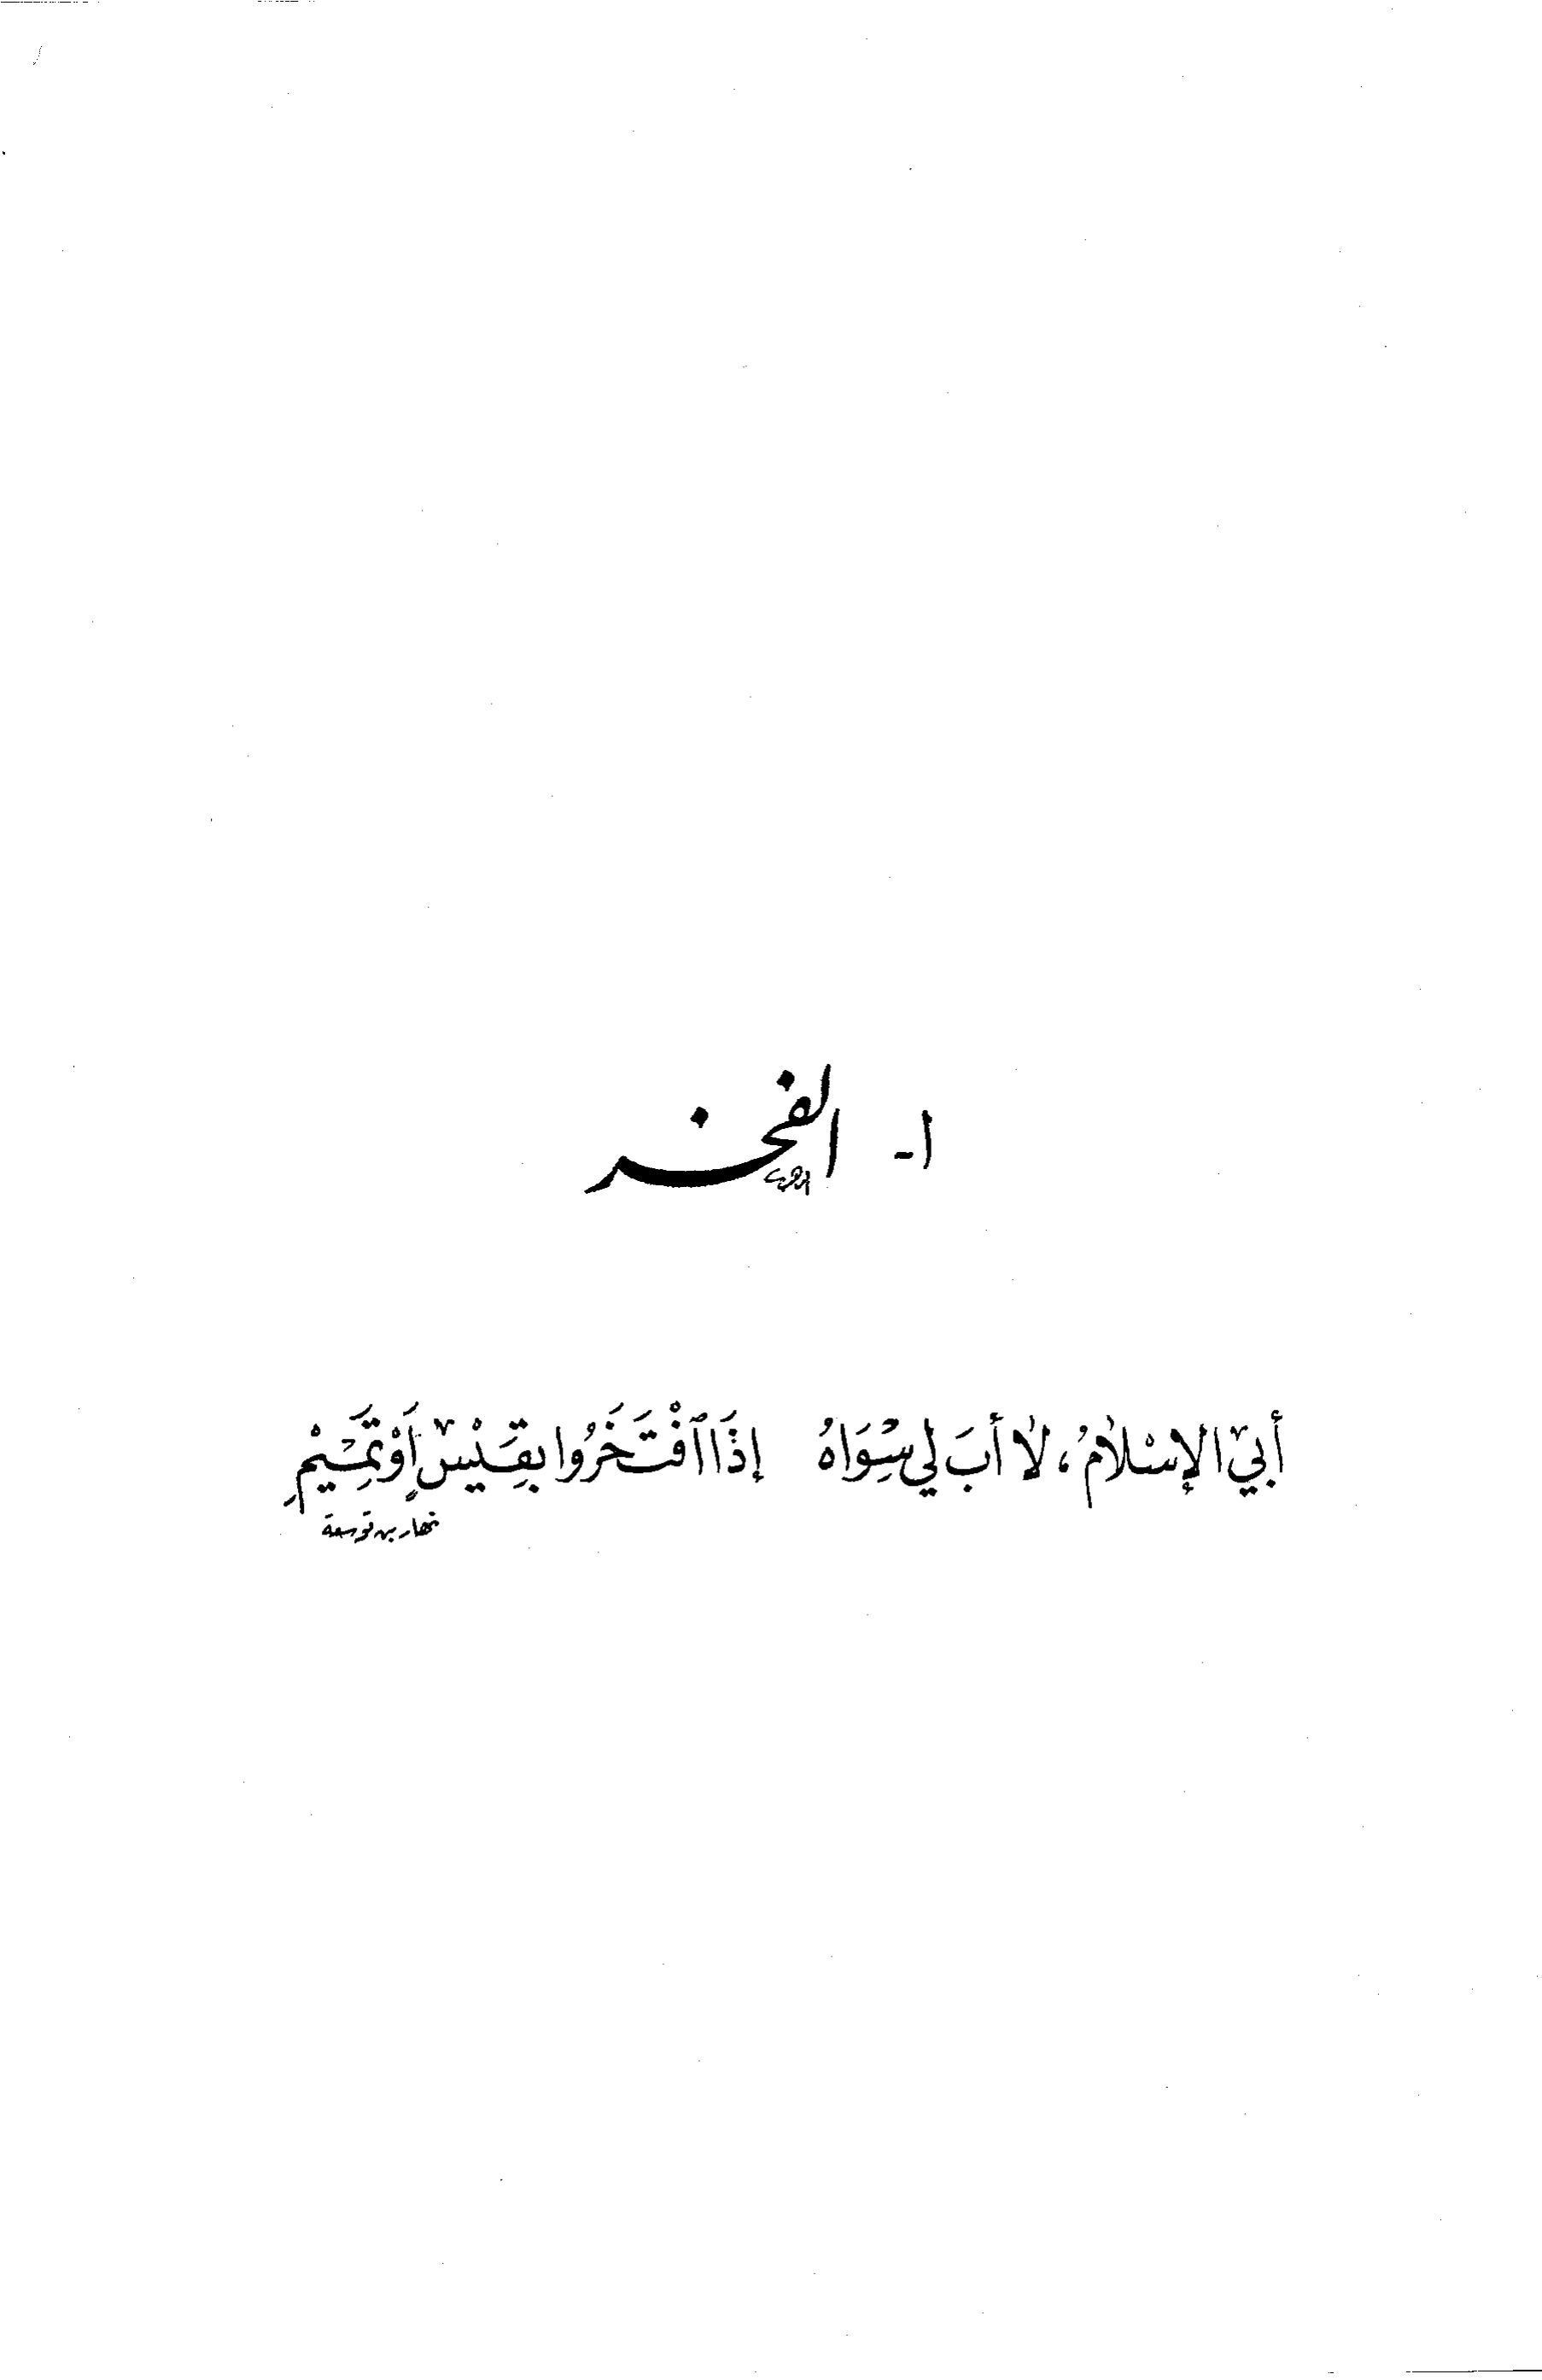 ١- الفخر
أَبِي الإِسْلاَمُ، لاَ أَبَ لِي سِوَاهُ إِذَا ٱفْتَخَرُوا بِقَيْسٍ أَوْ تَمِيْمِ
نهار بن توسعة